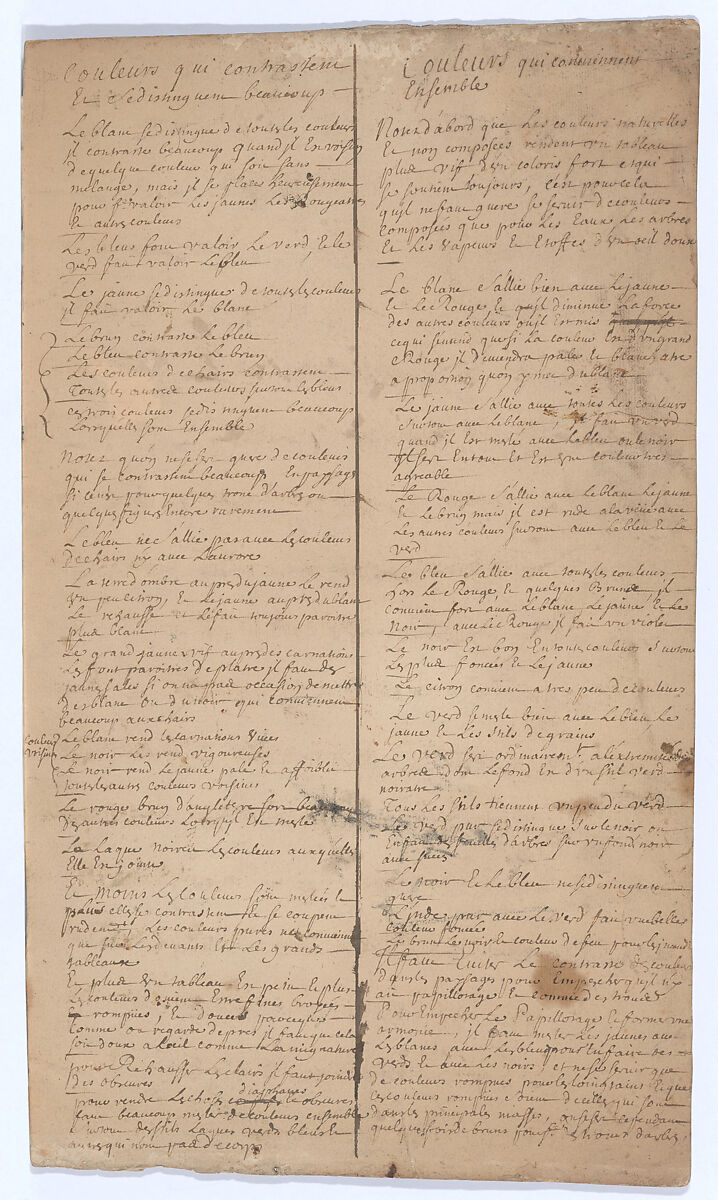 Couleurs qui contrastent
Et se distinguent beaucoup
Le blanc se distingue de toutes les couleurs
il contraste beaucoup quand il est voisin
de quelque couleur qui soit sans
melange, mais il se place heureusement
pour valoir les jaunes les Rougeatres
Et autres couleurs
Les bleus font valoir le verd, Et le
verd fait valoir le bleu
Le jaune se distingue de toutes les couleurs
il fait valoir le blanc
Le brun contraste le bleu
Le bleu contraste le brun
Les couleurs de chairs contrastent
Toutes les autres couleurs surtout les bleus
ces trois couleurs se distinguent beaucoup
Lorsquelles sont Ensemble
Notez quon ne se sert guere de couleurs
qui se contrastent beaucoup En paysage
si ce n'est pour quelques tronc d'arbres ou
quelques figures Encore rarement
Le bleu ne s'allie pas avec les couleurs
de chairs ny avec L'aurore
La terre d'ombre aupres du jaune Le rend
un peu citron, Et le jaune aupres du blanc
Le rehausse Et le fait toujours paroitre
plus blanc
Le grand jaune vif aupres des carnations
Les font paroitres de platre il faut des
jaunes salles si on na pas occasion de mettre
des blanc ou du noir qui conviennent
beaucoup aux chairs
couleurs
voisines
Le blanc rend les carnations vives
Le noir les rend vigoureuses
Le noir rend Le jaune pale Et affoibli
toutes les autres couleurs voisines
Le rouge brun d'angleterre sort beaucoup
des autres couleurs Lorsquil Est meslé
La Laque noircit les couleurs auxquelles
Elle Est jointe
Et moins les couleurs sont meslées
plus elles se contrastent Et se coupent
rudement, Les couleurs pures ne conviennent
que sur les devants Et Les grands
tableaux
Et plus un tableau Est petit Et plus
Les couleurs doivent Etre fines broyées
rompues, Et douces parceque
comme on regarde de pres il faut que cela
soit doux a l'oeil comme La mignature
pour Rehausser les clairs il faut joindre
des obscures
diaphanes
pour rendre les choses obscures
faut beaucoup mesler de couleurs ensemble
surtout des stils Laques verds bleus Et
autres qui nont pas de corps
Couleurs qui conviennent
Ensemble
Notez d'abord que Les couleurs naturelles
Et non composées rendent un tableau
plus vif d'un coloris fort et qui
se soutient toujours, c'est pour cela
quil ne faut guere se servir de couleurs
composées que pour les Eaux Les arbres
Et Les vapeurs Et Etoffes d'un oeil doux
Le blanc s'allie bien avec Le jaune
Et Le Rouge, Et quil diminue La force
des autres couleurs ou il Est mis
ce qui s'entend que si la couleur Est d'un grand
Rouge il deviendra pale Et blanchatre
a proportion quon y met du blanc
Le jaune s'allie avec toutes Les couleurs
surtout avec le blanc, il fait un verd
quand il Est meslé avec Le bleu ou le noir
Il sert En tout Et Est une couleur tres
agreable
Le Rouge s'allie avec Le blanc Le jaune
Et Le brun mais il est rude a la veüe avec
Les autres couleurs surtout avec Le bleu Et Le
verd
Le bleu s'allie avec toutes les couleurs
hors le Rouge, Et quelques Bruns, il
convient fort avec Le blanc, Le jaune, Et Le
Noir, avec Le Rouge il fait un violet
Le noir Est bon En toutes couleurs surtout
Les plus foncées Et Le jaune
Le citron convient a tres peu de couleurs
Le verd se mele bien avec Le bleu Le
jaune Et Les stils de grains
Le verd sert ordinairemt. a lextremité des
arbres dont Le fond Est d'un stil verd
noiratre
Tous Les stils tiennent un peu du verd
Les verd pur se distingue sur le noir ou
En fait des feuilles d'arbres sur un fond noir
avec succes
Le noir Et Le bleu ne se distinguent
guere
L'inde pur avec Le verd fait une belle
couleur foncée
Le brun Le noir Et couleur de feu pour les
Il faut Eviter Le contraste des couleurs
dans les paysages pour Empecher quil n'y
ait papillotage Et comme des troües
Pour Empecher Le Papillotage Et former une
armonie, il faut mesler Les jaunes avec
Les blancs avec Les bleus pour En faire des
verds Et avec Les noirs, et ne se servir que
de couleurs rompues pour les lointains Et que
ces couleurs rompues soient de celles qui sont
dans les principales masses, on se sert cependant
quelquesfois de bruns pour Les troncs d'arbres